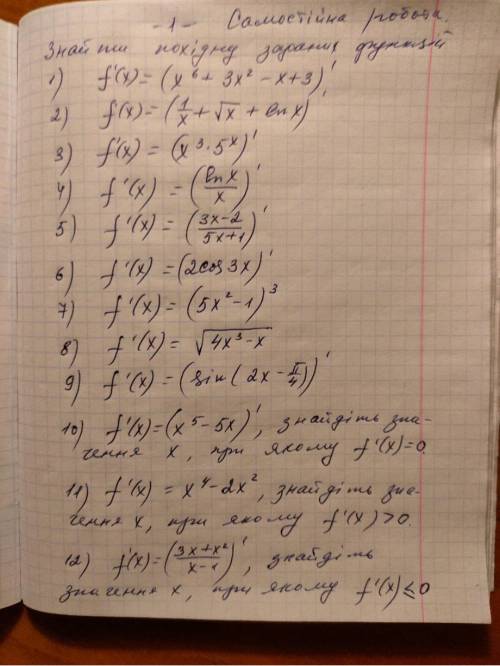 - 1 - Самостійна робота.
Знайти похідну заданих функцій
1) f'(x) = (x⁶ + 3x² - x + 3)'
2) f'(x) = (1/x + √x + ln x)'
3) f'(x) = (x³ · 5ˣ)'
4) f'(x) = (ln x / x)'
5) f'(x) = ((3x-2)/(5x+1))'
6) f'(x) = (2cos 3x)'
7) f'(x) = (5x² - 1)³
8) f'(x) = √(4x³ - x)
9) f'(x) = (sin(2x - π/4))'
10) f'(x) = (x⁵ - 5x)', знайдіть зна-
чення x, при якому f'(x)=0.
11) f'(x) = x⁴ - 2x², знайдіть зна-
чення x, при якому f'(x) > 0.
12) f'(x) = ((3x+x²)/(x-1))', знайдіть
значення x, при якому f'(x) ≤ 0